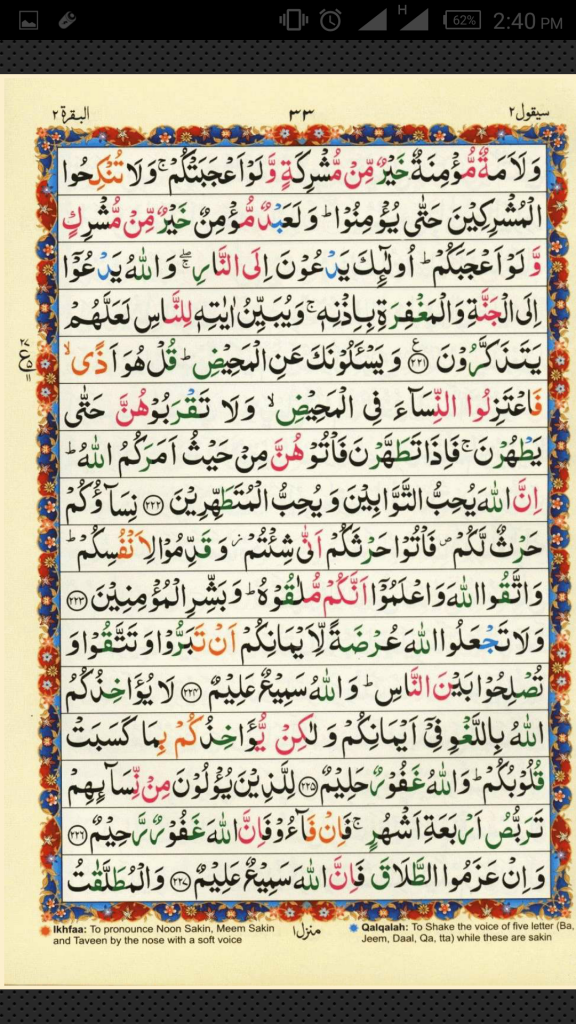 62% 2:40 PM
البقرة ٢ ٣٣ سيقول ٢
وَلَاَمَةٌ مُّؤْمِنَةٌ خَيْرٌ مِّنْ مُّشْرِكَةٍ وَّلَوْ اَعْجَبَتْكُمْ ۚ وَلَا تُنْكِحُوا
الْمُشْرِكِيْنَ حَتّٰى يُؤْمِنُوْا ؕ وَلَعَبْدٌ مُّؤْمِنٌ خَيْرٌ مِّنْ مُّشْرِكٍ
وَّ لَوْ اَعْجَبَكُمْ ؕ اُولٰٓئِكَ يَدْعُوْنَ اِلَى النَّارِ ۖۚ وَاللّٰهُ يَدْعُوْٓا
اِلَى الْجَنَّةِ وَالْمَغْفِرَةِ بِاِذْنِهٖ ۚ وَيُبَيِّنُ اٰيٰتِهٖ لِلنَّاسِ لَعَلَّهُمْ
يَتَذَكَّرُوْنَ ﴿۲۲۱﴾ وَ يَسْـَٔلُوْنَكَ عَنِ الْمَحِيْضِ ؕ قُلْ هُوَ اَذًى ۙ
فَاعْتَزِلُوا النِّسَآءَ فِى الْمَحِيْضِ ۙ وَلَا تَقْرَبُوْهُنَّ حَتّٰى
يَطْهُرْنَ ۚ فَاِذَا تَطَهَّرْنَ فَاْتُوْهُنَّ مِنْ حَيْثُ اَمَرَكُمُ اللّٰهُ ؕ
اِنَّ اللّٰهَ يُحِبُّ التَّوَّابِيْنَ وَ يُحِبُّ الْمُتَطَهِّرِيْنَ ﴿۲۲۲﴾ نِسَآؤُكُمْ
حَرْثٌ لَّكُمْ ۪ فَاْتُوْا حَرْثَكُمْ اَنّٰى شِئْتُمْ ؗ وَ قَدِّمُوْا لِاَنْفُسِكُمْ ؕ
وَاتَّقُوا اللّٰهَ وَاعْلَمُوْٓا اَنَّكُمْ مُّلٰقُوْهُ ؕ وَبَشِّرِ الْمُؤْمِنِيْنَ ﴿۲۲۳﴾
وَلَا تَجْعَلُوا اللّٰهَ عُرْضَةً لِّاَيْمَانِكُمْ اَنْ تَبَرُّوْا وَتَتَّقُوْا وَ
تُصْلِحُوْا بَيْنَ النَّاسِ ؕ وَاللّٰهُ سَمِيْعٌ عَلِيْمٌ ﴿۲۲۴﴾ لَا يُؤَاخِذُكُمُ
اللّٰهُ بِاللَّغْوِ فِىْٓ اَيْمَانِكُمْ وَ لٰكِنْ يُّؤَاخِذُكُمْ بِمَا كَسَبَتْ
قُلُوْبُكُمْ ؕ وَاللّٰهُ غَفُوْرٌ حَلِيْمٌ ﴿۲۲۵﴾ لِلَّذِيْنَ يُؤْلُوْنَ مِنْ نِّسَآئِهِمْ
تَرَبُّصُ اَرْبَعَةِ اَشْهُرٍ ۚ فَاِنْ فَآءُوْ فَاِنَّ اللّٰهَ غَفُوْرٌ رَّحِيْمٌ ﴿۲۲۶﴾
وَ اِنْ عَزَمُوا الطَّلَاقَ فَاِنَّ اللّٰهَ سَمِيْعٌ عَلِيْمٌ ﴿۲۲۷﴾ وَالْمُطَلَّقٰتُ
Ikhfaa: To pronounce Noon Sakin, Meem Sakin
and Taveen by the nose with a soft voice
منزل ۱
Qalqalah: To Shake the voice of five letter (Ba,
Jeem, Daal, Qa, tta) while these are sakin